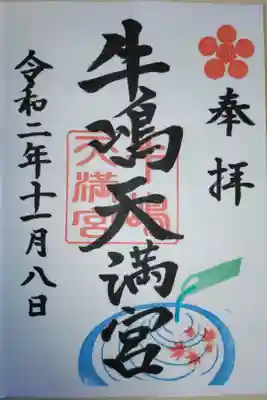 奉拝
牛嶋天満宮
令和二年十一月八日
牛嶋
天満宮